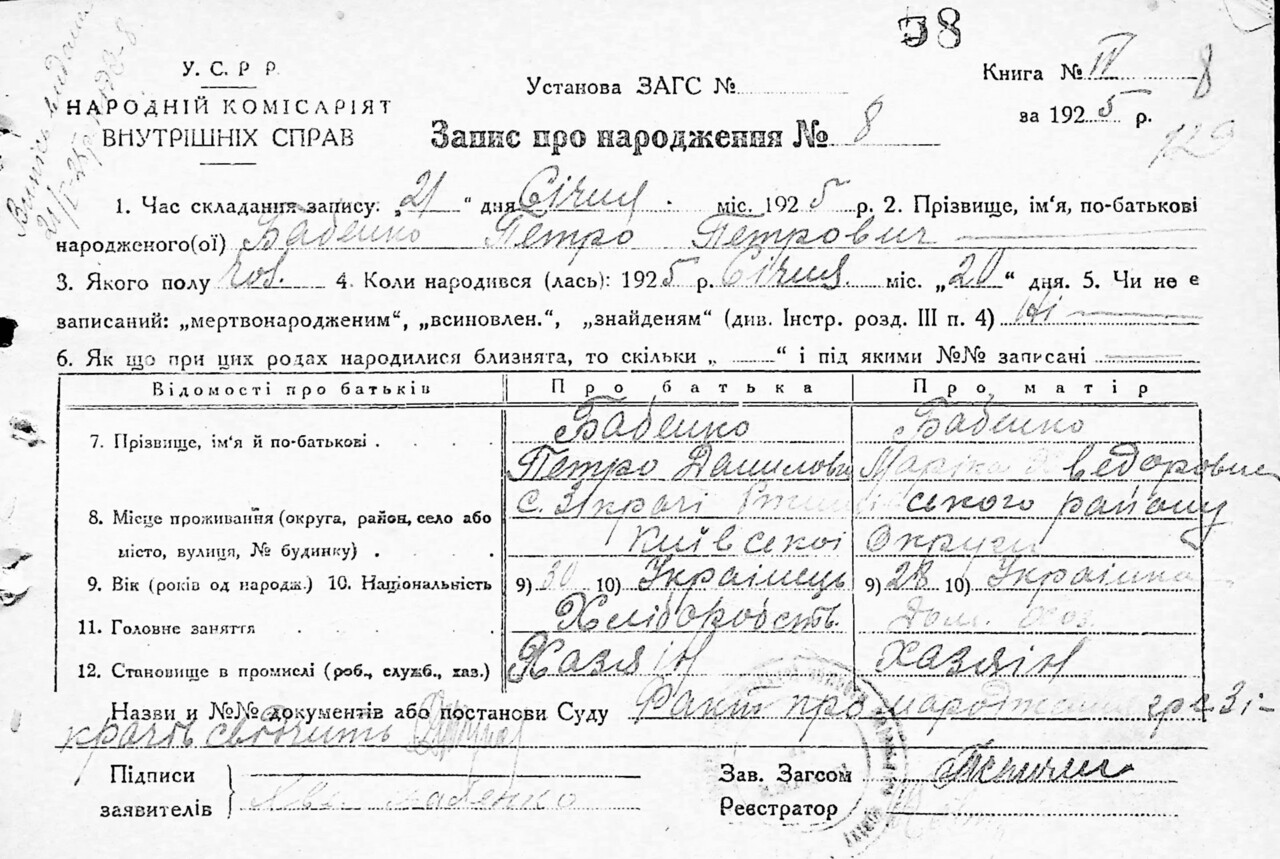 38
У. С. Р Р.
НАРОДНІЙ КОМІСАРІЯТ
ВНУТРІШНІХ СПРАВ
Установа ЗАГС №
Книга № IV 8
за 1925 р.
Запис про народження № 8
1. Час складання запису. „21“ дня Січня міс. 1925 р. 2. Прізвище, ім'я, по-батькові
народженого(ої) Бабенко Петро Петрович
3. Якого полу чол. 4. Коли народився (лась): 1925 р. Січня міс. „20“ дня. 5. Чи не є
записаний: „мертвонародженим“, „всиновлен.“, „знайденям“ (див. Інстр. розд. III п. 4) Ні
6. Як що при цих родах народилися близнята, то скільки „ “ і під якими №№ записані
Відомості про батьків Про батька Про матір
7. Прізвище, ім'я й по-батькові . Бабенко Бабенко
Петро Данилович
8. Місце проживання (округа, район, село або с. Зікрачі ського району
місто, вулиця, № будинку) . Київської Округи
9. Вік (років од народж.) 10. Національність 9) 30 10) Українець 9) 28 10) Українка
11. Головне заняття Хліборобств. Дом. хоз.
12. Становище в промислі (роб., служб., хаз.) Хазяін хазяін
Назви и №№ документів або постанови Суду Факт про народження гр. с. Зі-
крачь свідчить
Підписи
заявителів Бабенко
Зав. Загсом
Реєстратор